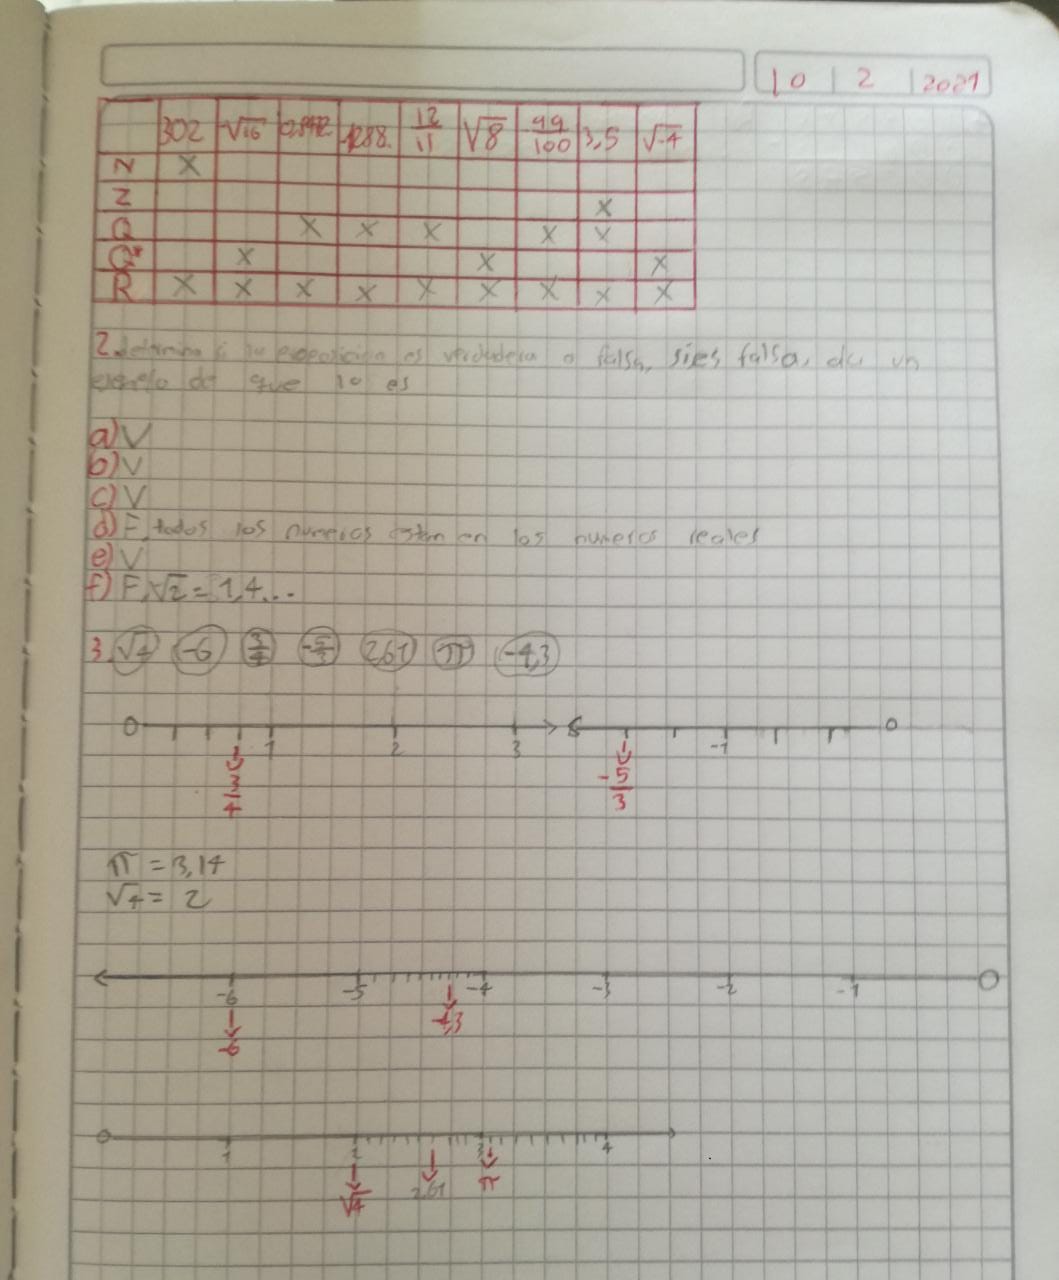 10 2 2021
302 √16 1288. 12/11 √8 99/100 3,5 √-4
N X
Z X
Q X X X X X
Q* X X X
R X X X X X X X X X
2. determina si la proposicion es verdadera o falsa, si es falsa, da un
ejemplo de que lo es
a) V
b) V
c) V
d) F, todos los numeros estan en los numeros reales
e) V
f) F, √2 = 1,4...
3. √4 -6 3/4 -5/3 2,61 π -4,3
0 1 2 3 -1 0
3/4 -5/3
π = 3,14
√4 = 2
-6 -5 -4 -3 -2 -1 0
-6 -4,3
0 1 2 3 4
√4 2,61 π